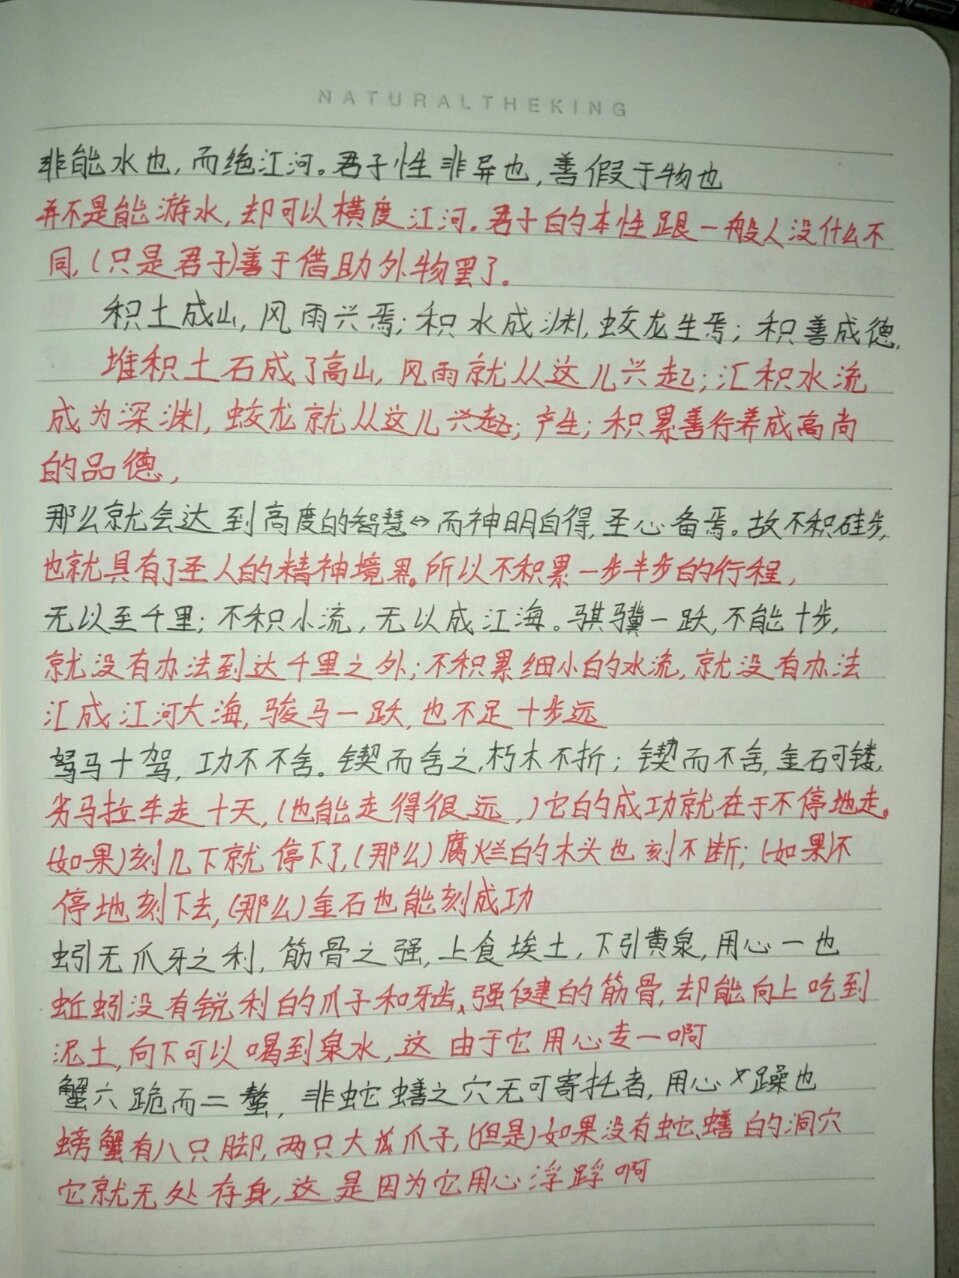 NATURALTHEKING
非能水也，而绝江河。君子性非异也，善假于物也
并不是能游水，却可以横度江河。君子的本性跟一般人没什么不
同，(只是君子)善于借助外物罢了。
积土成山，风雨兴焉；积水成渊，蛟龙生焉；积善成德，
堆积土石成了高山，风雨就从这儿兴起；汇积水流
成为深渊，蛟龙就从这儿兴起；产生；积累善行养成高尚
的品德，
那么就会达到高度的智慧⇔而神明自得，圣心备焉。故不积硅步，
也就具有了圣人的精神境界。所以不积累一步半步的行程，
无以至千里；不积小流，无以成江海。骐骥一跃，不能十步，
就没有办法到达千里之外；不积累细小的水流，就没有办法
汇成江河大海，骏马一跃，也不足十步远
驽马十驾，功不不舍。锲而舍之，朽木不折；锲而不舍，金石可镂，
劣马拉车走十天，(也能走得很远，)它的成功就在于不停地走。
(如果)刻几下就停下了，(那么)腐烂的木头也刻不断；(如果)不
停地刻下去，(那么)金石也能刻成功
蚓无爪牙之利，筋骨之强，上食埃土，下引黄泉，用心一也
蚯蚓没有锐利的爪子和牙齿、强健的筋骨，却能向上吃到
泥土，向下可以喝到泉水，这由于它用心专一啊
蟹六跪而二螯，非蛇蟮之穴无可寄托者，用心躁也
螃蟹有八只脚，两只大爪子，(但是)如果没有蛇、蟮的洞穴
它就无处存身，这是因为它用心浮躁啊